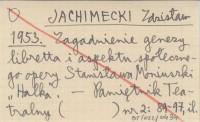 JACHIMECKI Zdzisław
1953. Zagadnienie genezy
libretta i aspektu społeczne-
go opery Stanisława Moniuszki
„Halka". — Pamiętnik Tea-
tralny ( ) nr 2: 89-97, il.